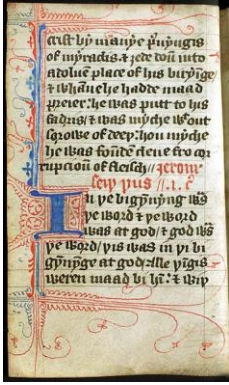 crist by manye p̃uyngis
of myraclis. & ȝede doū into
a doluē place of his biryīge
& whāne he hadde maad
preier. he was putt to his
fadris. & was myche wͭ out
sorowe of deeþ. hou myche
he was foūdē clene fro cor
rupcioū of fleisch //
In ye bigynnyng was
ye word & ye word
was at god / & god was
ye word / yis was in yi bi
gynyge at god. alle yīgis
weren maad bi hī. & wiþ